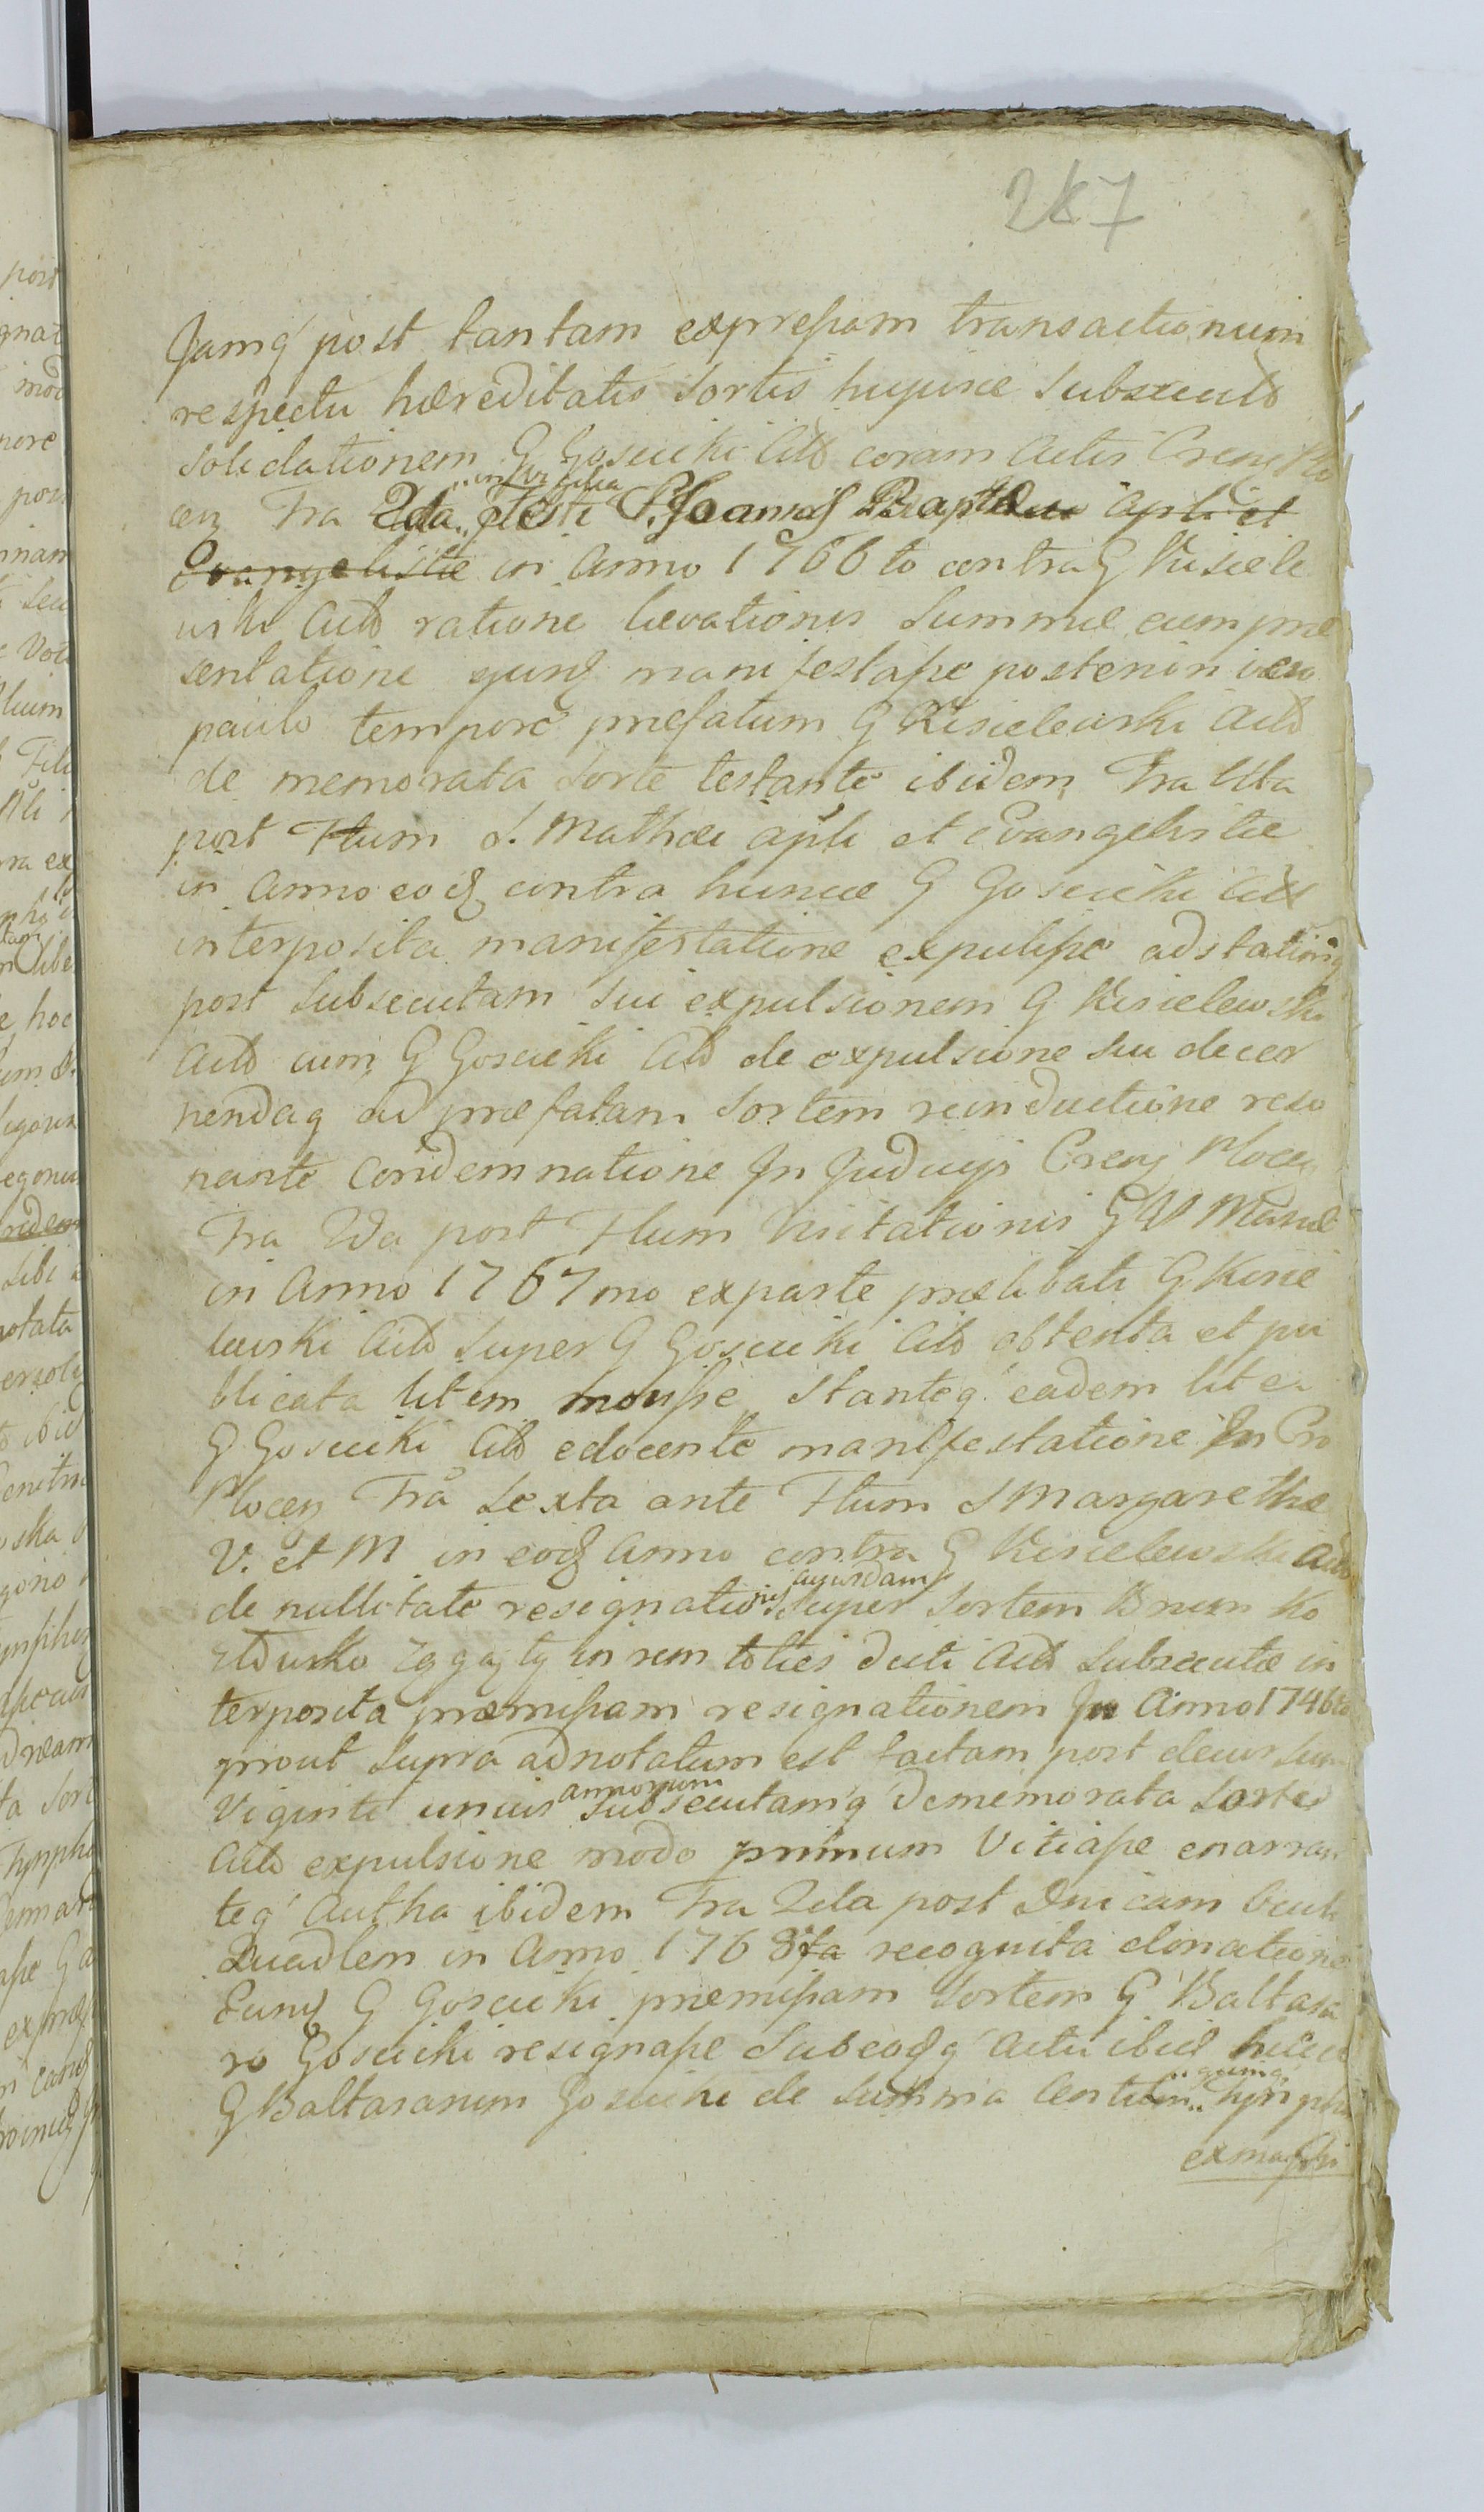 287
Jamq́ post tantam expressam transactionum
respectu hæreditatis sortis hujusce subsecuto
solidationem G Goscicki Actō coram Actis Crens Plo
cen Fra 2da in Vigilia Festi S. Joannis Baptæ Apli et
Evangelistæ in Anno 1766to contra G Kisiele
wski Actō ratione levationis Summæ cum præ
sentatione ejusd manifestasse posteriori vero
paulo tempore præfatum G Kisielewski Actō
de memorata Sorte testante ibidem Fra
post Ftum S. Mathæi Apli et Evangelistæ
in Anno eod contra hunce G Goscicki Actō
interposita manifestatione expulisse adstatimq
post subsecutam sui expulsionem G Kisielewski
Actō cum G Goscicki Actō de expulsione sui decer
nendaq ad præfatam Sortem reinductione reso
nante Condemnatione In Judicijs Crens Plocen
Fra 2da post Ftum Visitationis B V Mariæ
in Anno 1767mo ex parte prælibati G Kisie
lewski Actō super G Goscicki Actō obtenta et pu
blicata litem movisse Stanteq́ eadem lite
G Goscicki Actō edocente manifestatione In Cro
Plocen Fra Sexta ante Ftum S Margarethæ
V. et M in eod Anno contra G Kisielewski Actō
de nullitate resignationis cujusdam super Sortem Bnum Ko
in rem toties dicti Actō subsecutæ in
terposita præmissam resignationem In Anno 1746to
prout supra adnotatum est factam post decursum
Viginti unius annorum subsecutamq́ de memorata Sorte
Actō expulsione modo primum Vitiasse enarran
teq́ Autha ibidem Fra 2da post Dnicam Oculi
Quadlem in Anno 1768 recognita donatione
Eund G Goscicki præmissam Sortem G Baltasa
ro Goscicki resignasse Sub eodq́ actu ibid
G Baltasarum Goscicki de Summa Centum